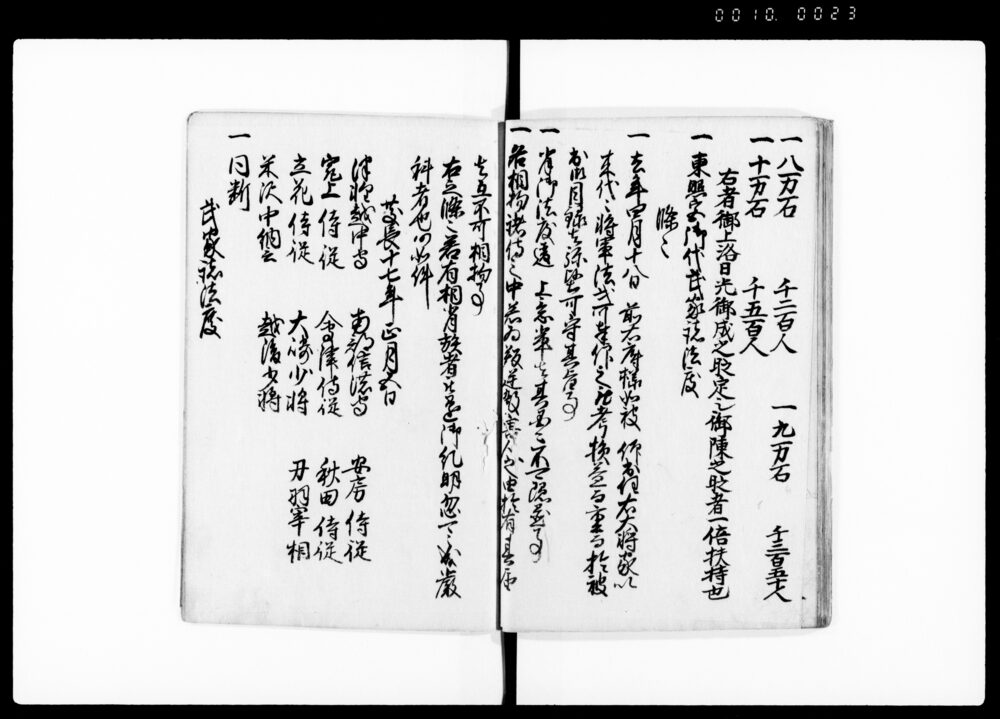 0010. 0023
一八万石 千二百人 一九万石 千三百五十人
一十万石 千五百人
右者御上洛日光御成之時定之御陳之時者一倍扶持也
一東照宮御代武家諸法度
條々
一去年四月十八日 前右府様如被 仰出任右大将家以
来代々将軍法式可奉仰之被考損益而重而於被
出御目録者弥堅可守其旨事
一背御法度違 上意輩者其国々不可隠置事
一各相拘諸侍之中若為叛逆殺害人之由於有其届
者互不可相拘事
右之條々若有相背族者被遂御糺明忽可被處嚴
科者也仍如件
慶長十七年正月五日
津軽越中守 南部信濃守 安房侍従
最上侍従 會津侍従 秋田侍従
立花侍従 大崎少将 丹羽宰相
米沢中納言 越後少将
一同断
武家諸法度